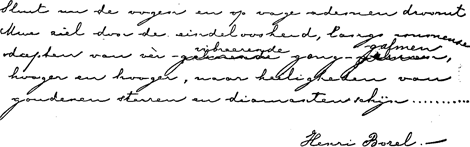 Sluit nu de oogen en op vage ademen droomt
Uwe ziel door de eindeloosheid, langs
van vèr-vibreerende gong-galmen,
hooger en hooger, naar heiligheden van
gouddenen sterren en diamanten schijn...........
Henri Borel.—